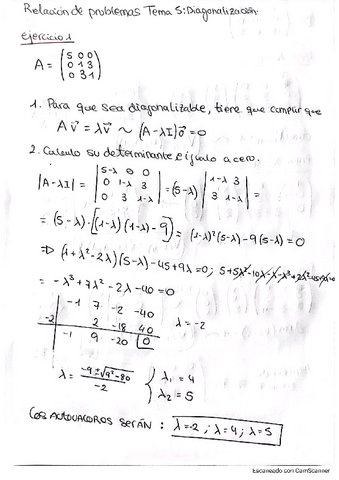 Relación de problemas Tema 5: Diagonalización
Ejercicio 1
A = (5 0 0
0 1 3
0 3 1)
1. Para que sea diagonalizable, tiene que cumplir que
A v⃗ = λ v⃗ ~ (A-λI) v⃗ = 0
2. Calculo su determinante e igualo a cero.
|A-λI| = |5-λ 0 0
0 1-λ 3
0 3 1-λ| = (5-λ) |1-λ 3
3 1-λ| =
= (5-λ)·[(1-λ)(1-λ)-9] = (1-λ)²(5-λ)-9(5-λ) = 0
=> (1+λ²-2λ)(5-λ)-45+9λ = 0; 5+5λ²-10λ-λ-λ³+2λ²-45+9λ=0
= -λ³+7λ²-2λ-40 = 0
-1 7 -2 -40
-2 2 -18 40 λ = -2
-1 9 -20 0
λ = -9±√9²-80 / -2 { λ₁ = 4
λ₂ = 5
Los AUTOVALORES SERÁN : λ=-2 ; λ=4 ; λ=5
Escaneado con CamScanner